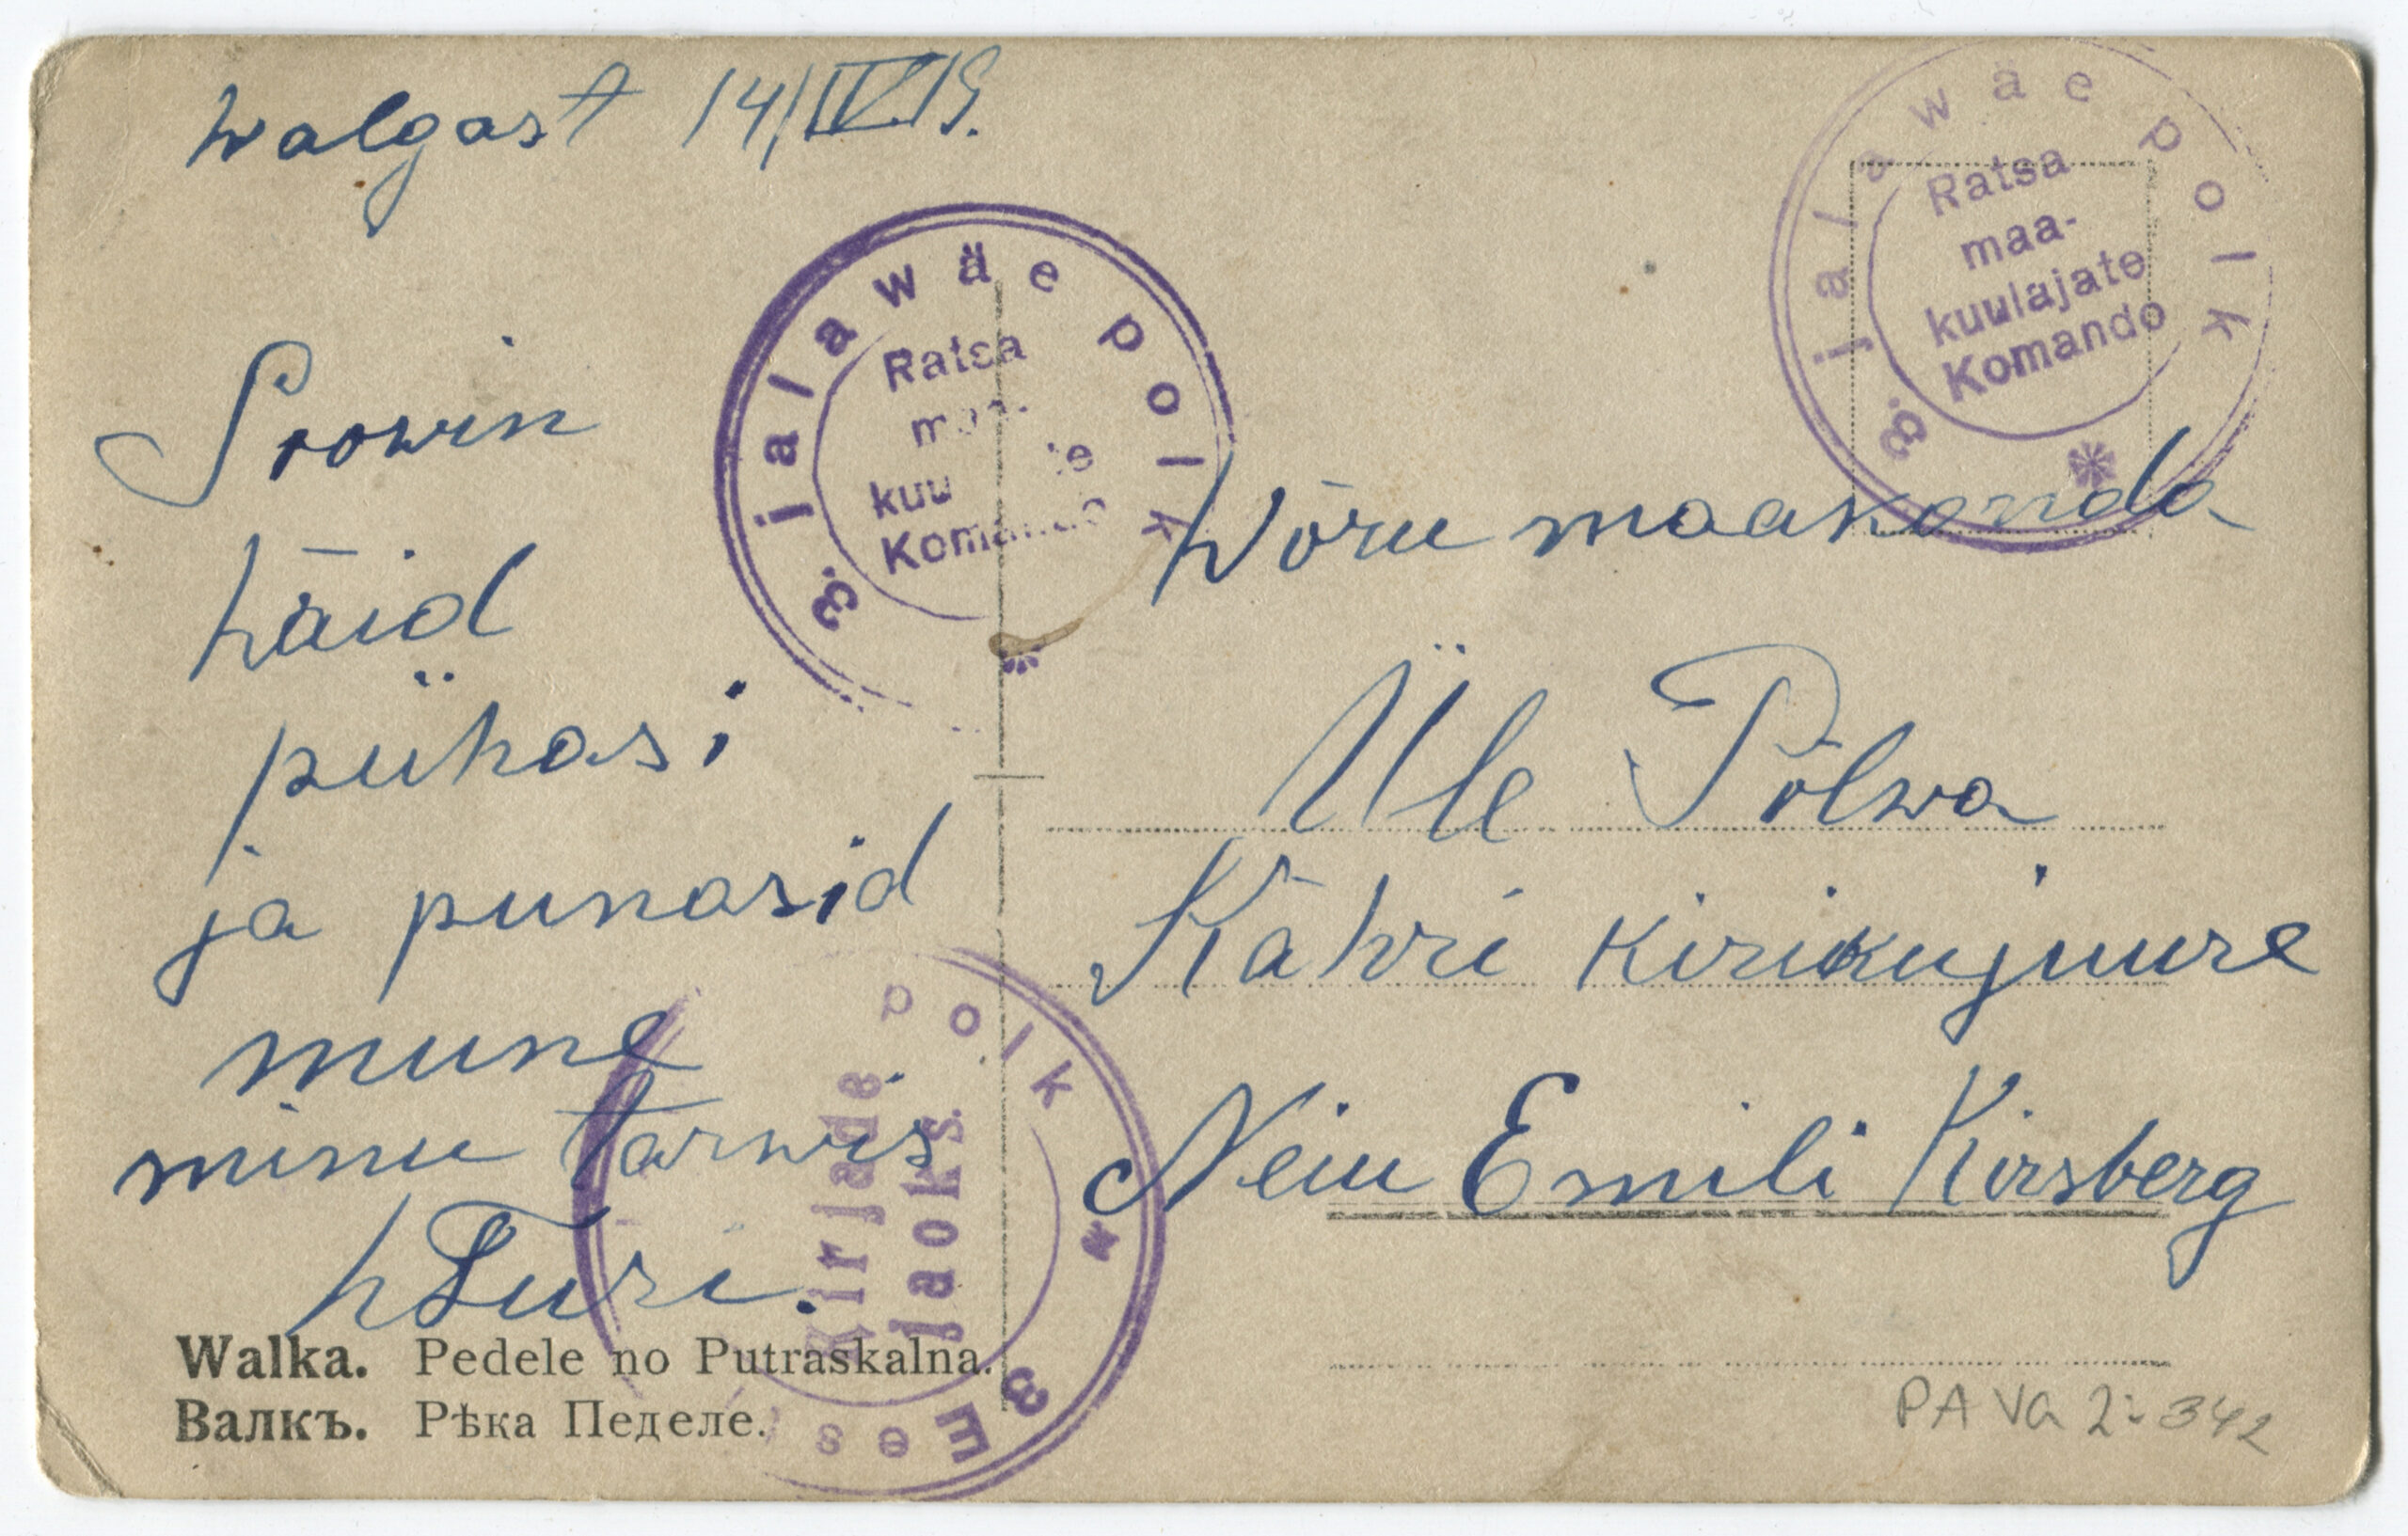 Walgast 14/IV.19.
Soowin
häid
pühasi
ja punasid
mune
minu tarwis
Wõru maakonda
Üle Põlwa
Kähri kirikujuure
Neiu Emili Kirsberg
3. jalawäe polk
Ratsa
maa-
kuulajate
Komando
3. jalawäe polk
Ratsa
maa-
kuu te
Komando
3 Ees polk
Kirjade
jaoks.
Walka. Pedele no Putraskalna.
Валкъ. Рѣка Педеле.
PA Va 2:342